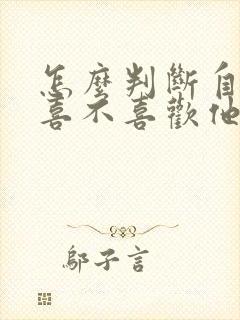 怎麼判斷自
喜不喜歡他
鄔子言